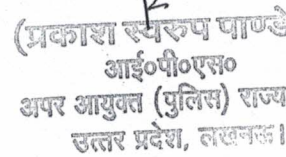 (प्रकाश स्वरुप पाण्डे
आई०पी०एस०
अपर आयुक्त (पुलिस) राज्य
उत्तर प्रदेश, लखनऊ।